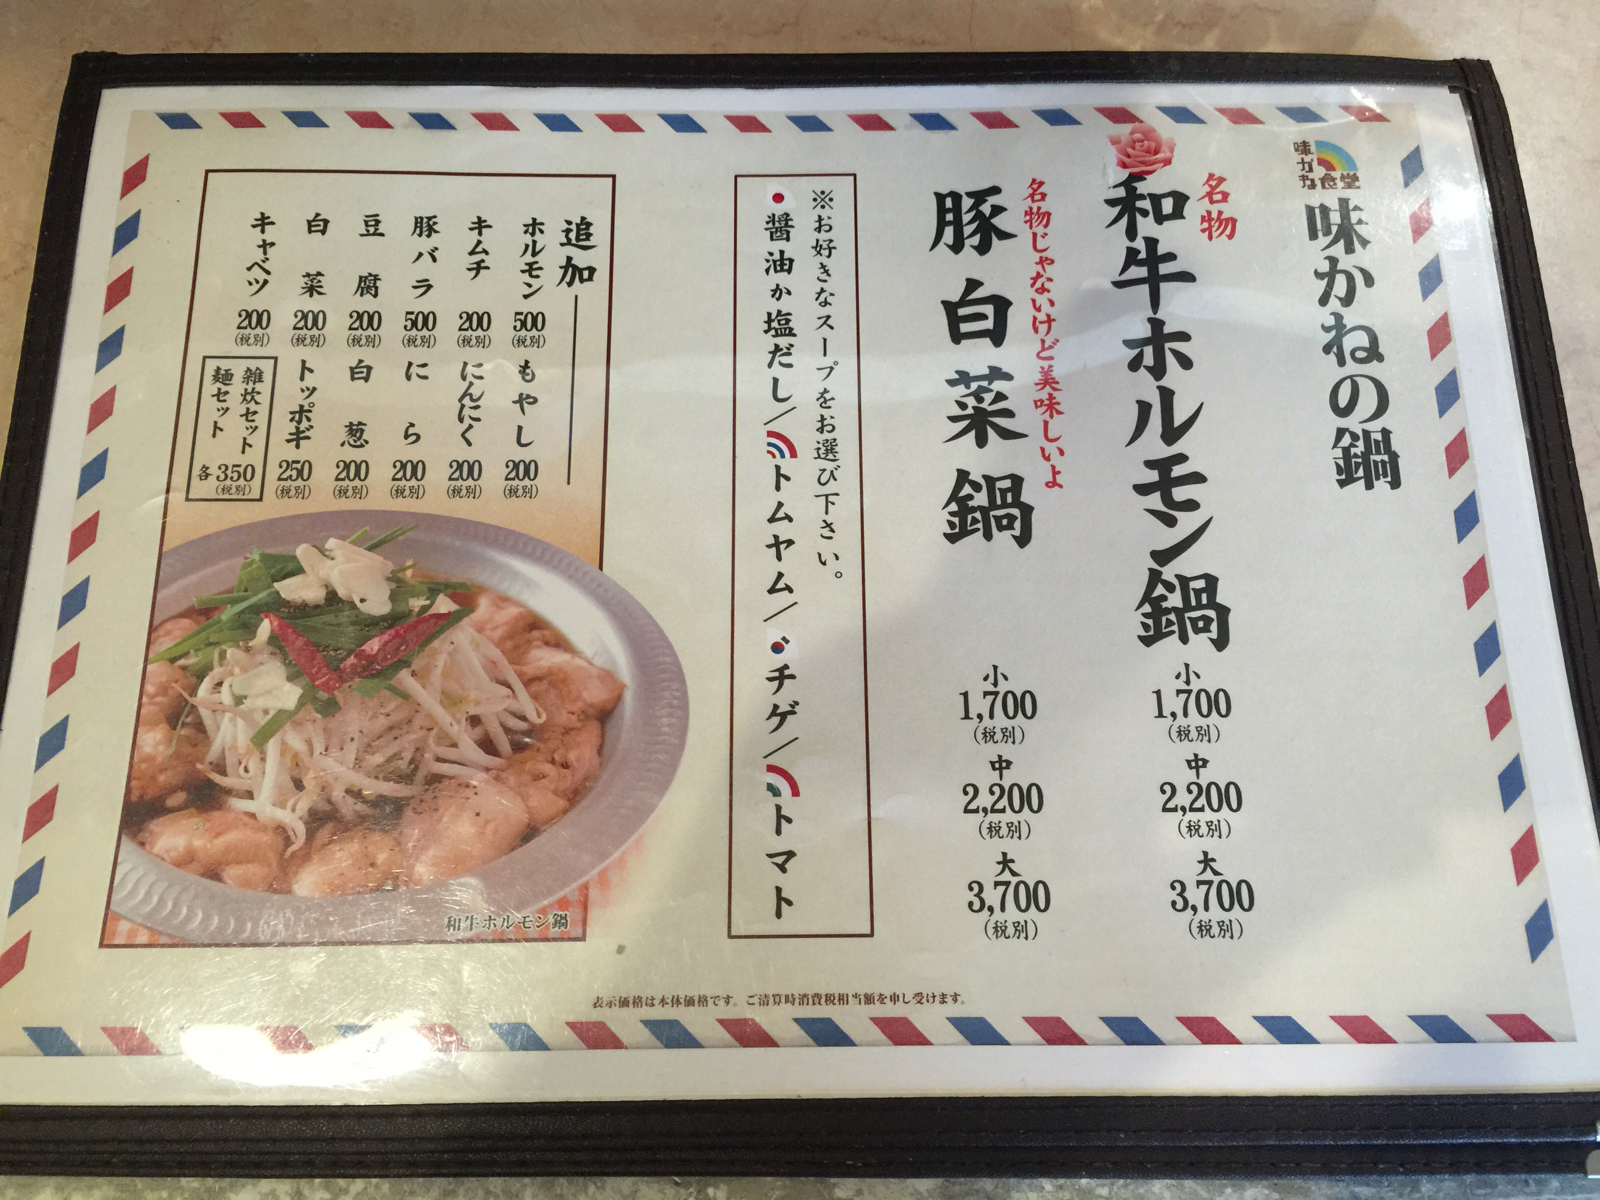 味かね食堂
味かねの鍋
名物
和牛ホルモン鍋
小
1,700
(税別)
中
2,200
(税別)
大
3,700
(税別)
名物じゃないけど美味しいよ
豚白菜鍋
小
1,700
(税別)
中
2,200
(税別)
大
3,700
(税別)
※お好きなスープをお選び下さい。
醤油か塩だし/トムヤム/チゲ/トマト
追加
ホルモン 500 (税別)
もやし 200 (税別)
キムチ 200 (税別)
にんにく 200 (税別)
豚バラ 500 (税別)
にら 200 (税別)
豆腐 200 (税別)
白葱 200 (税別)
白菜 200 (税別)
トッポギ 250 (税別)
キャベツ 200 (税別)
雑炊セット
麺セット
各350 (税別)
和牛ホルモン鍋
表示価格は本体価格です。ご清算時消費税相当額を申し受けます。